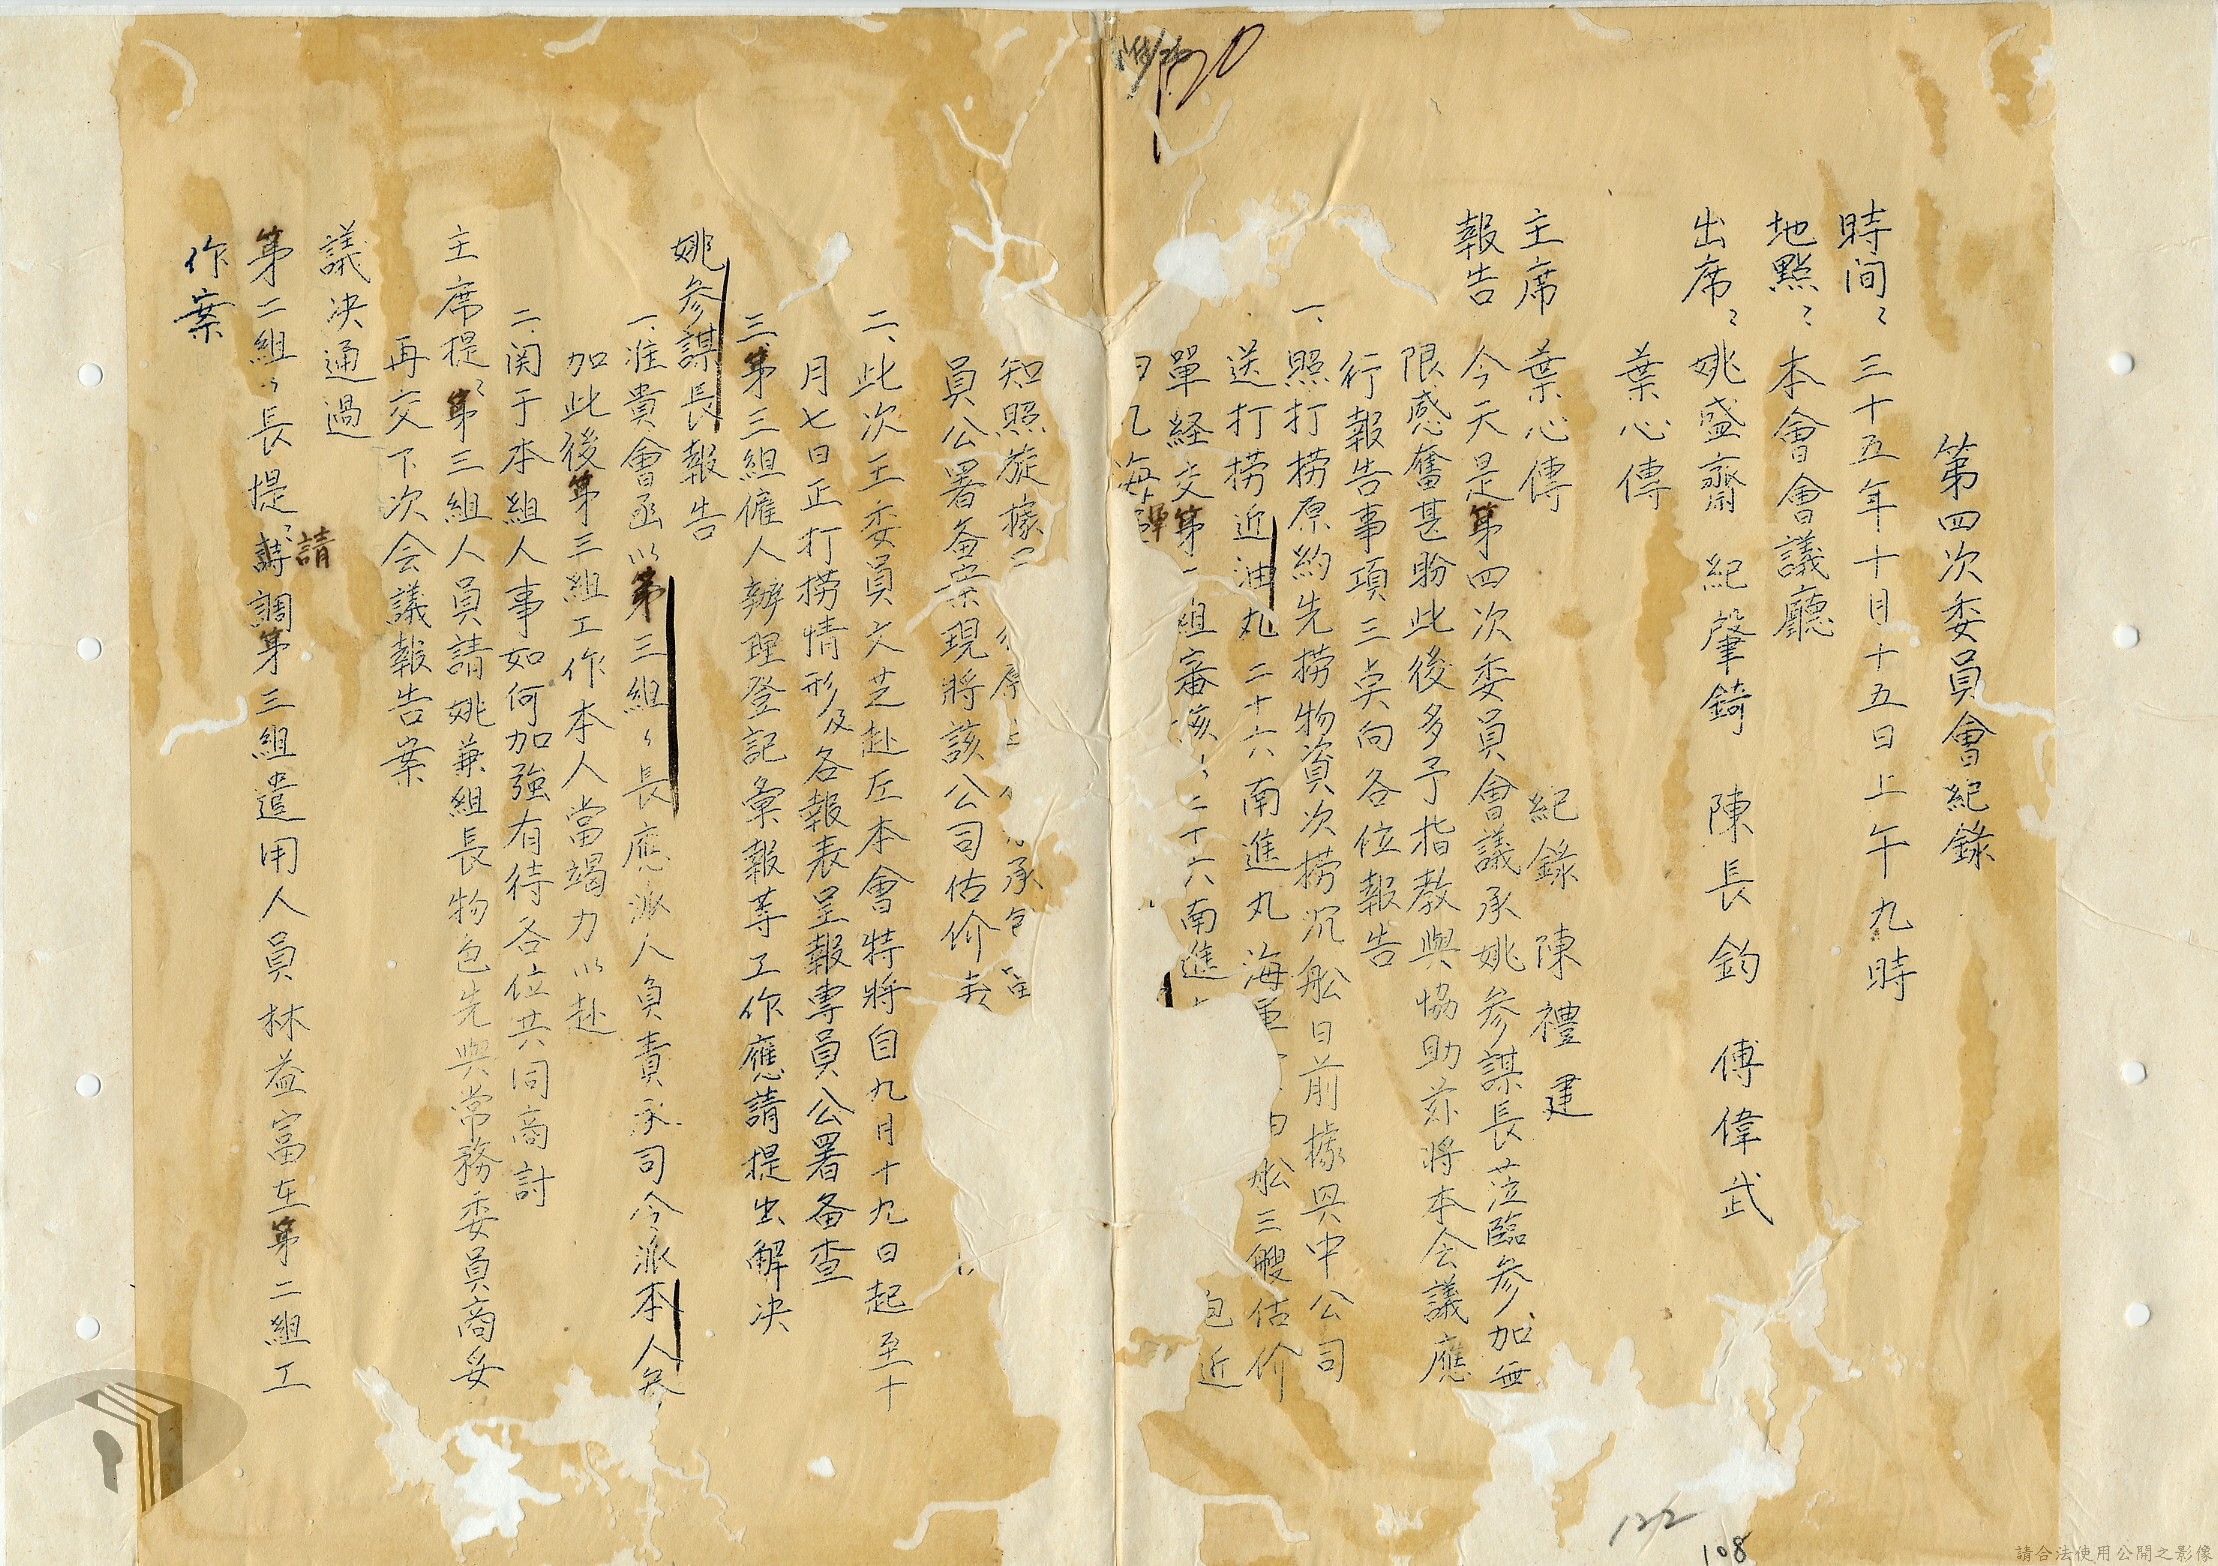 第四次委員會紀錄
時间:三十五年十月十五日上午九時
地點:本會會議廳
出席:姚盛齋 紀肇錡 陳長鈞 傅偉武
葉心傳
主席 葉心傳 紀錄 陳禮建
報告 今天是第四次委員會議承姚參謀長蒞臨參加無
限感奮甚盼此後多予指教與協助茲將本会議應
行報告事項三点向各位報告
一、照打撈原約先撈物資次撈沉舩日前據興中公司
送打撈近油丸二十六南進丸海 舩三艘估价
單経交第一組審核〻二十六南進 包近
海
知照旋據 承包
員公署备案現將該公司估价表
二、此次王委員文芝赴左本會特將自九月十九日起至十
月七日正打撈情形及各報表呈報專員公署备查
三、第三組僱人辦理登記彙報等工作應請提出解决
姚參謀長報告
一、准貴會函以第三組〻長應派人負責承司令派本人參
加此後第三組工作本人當竭力以赴
二、関于本組人事如何加強有待各位共同商討
主席提:第三組人員請姚兼組長物色先與常務委員商妥
再交下次会議報告案
議决通過
第二組〻長提:請調第三組遣用人員林益富在第二組工
作案
120
122
108
請合法使用公開之影像